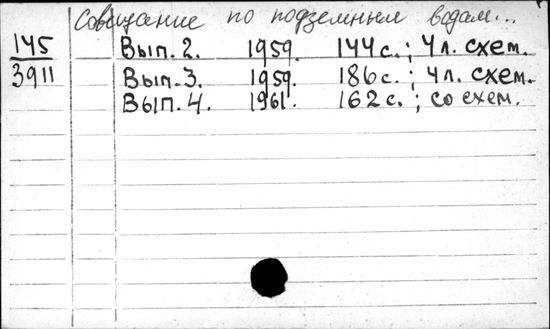 Совещание по подземным водам...
145 Вып. 2. 1959. 144 с.; 4 л. схем.
3911 Вып. 3. 1959. 186 с.; 4 л. схем.
Вып. 4. 1961. 162 с.; со схем.